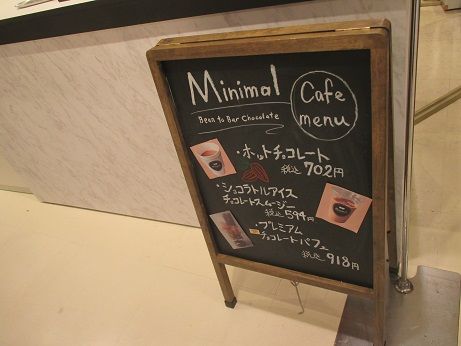 Minimal
Bean to Bar Chocolate
Cafe
menu
・ホットチョコレート
税込702円
・ショコラトルアイス
チョコレートスムージー
税込594円
・プレミアム
チョコレートパフェ
税込918円